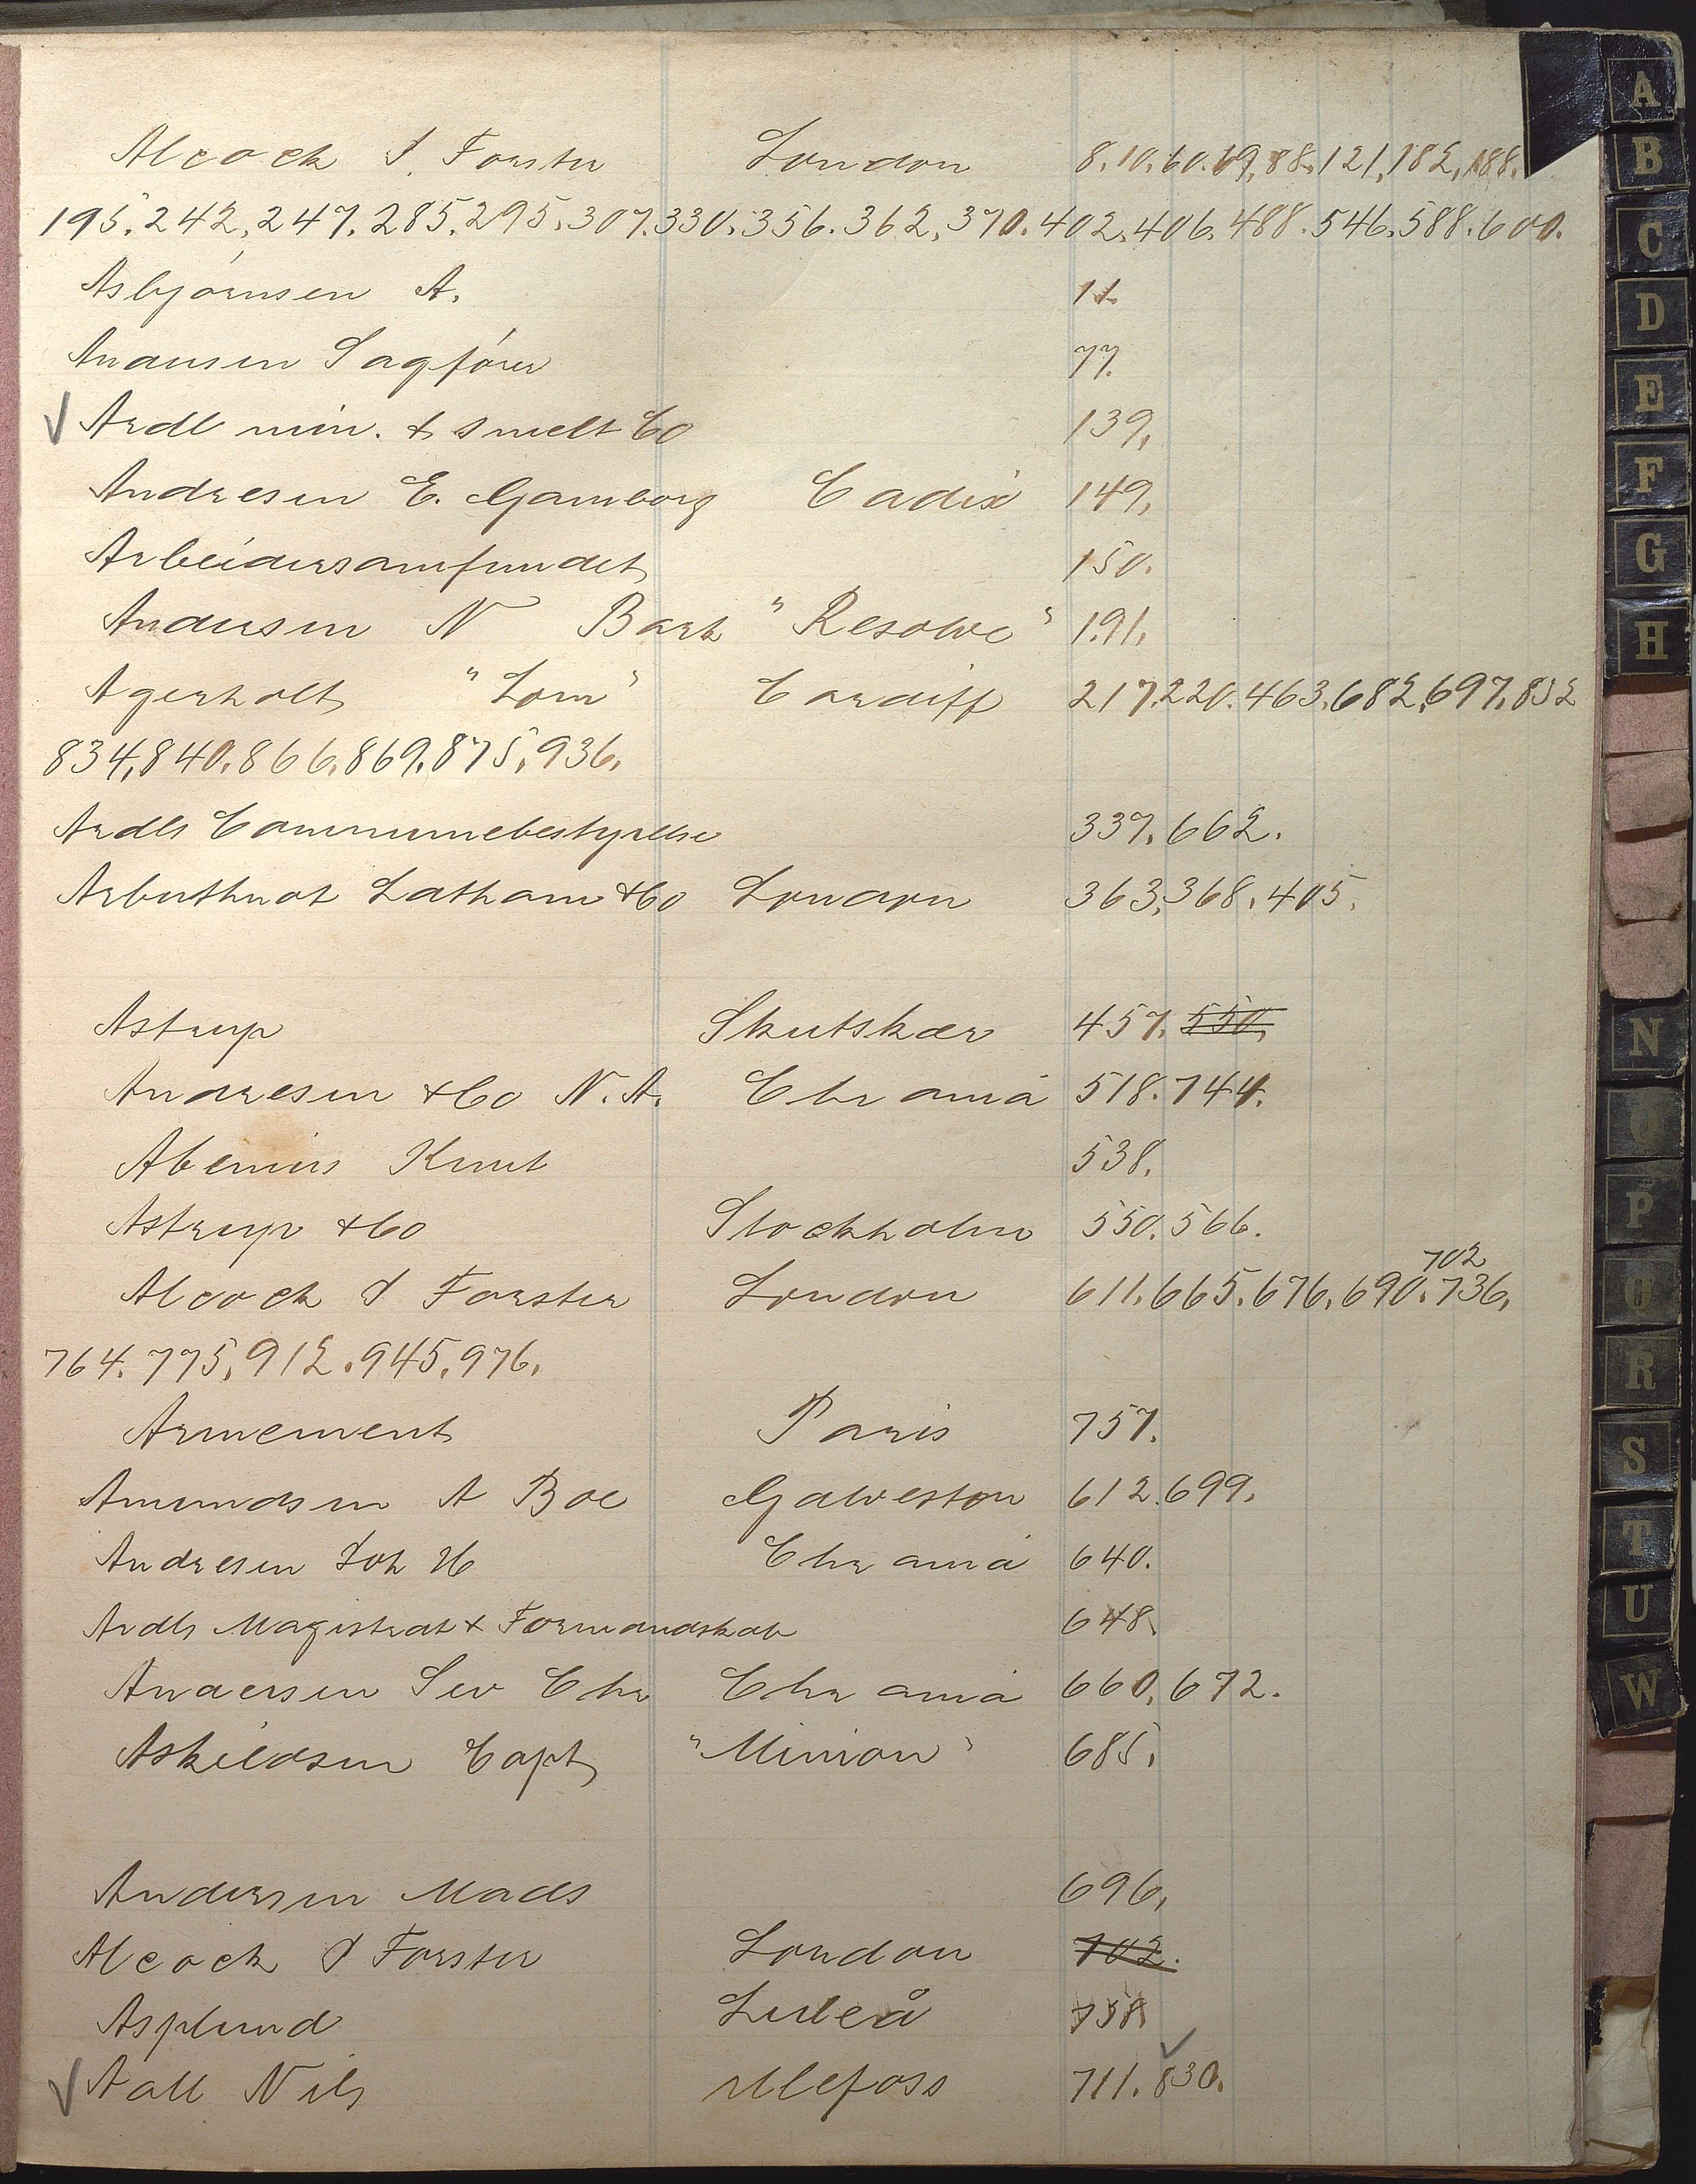 Alcock S. Forster London 8. 10. 60. 69. 88. 121, 182, 188.
195. 242, 247. 285. 295. 307. 330. 356. 362, 370. 402. 406. 488. 546. 588. 600.
Asbjørnsen A. 11.
Andersen Sagfører 77.
√ Ardl min. & smelt Co 139,
Andresen E. Gamborg Cadix 149,
Arbeidersamfundet 150.
Andersen N Bark "Resolve" 191.
Agerholt "Lom" Cardiff 217. 220. 463. 682. 697. 832
834, 840. 866. 869. 875, 936.
Ardls Communebestyrelse 337. 662.
Arbuthnot Latham & Co London 363, 368. 405.
Astrup Skutskær 457. 550.
Andresen & Co N. A. Chrania 518. 744.
Abenius Knut 538.
Astrup & Co Stockholm 550. 566.
702
Alcock S Forster London 611. 665. 676. 690. 736.
764. 775. 912. 945. 976.
Armement Paris 757.
Amundsen A Boe Galveston 612. 699.
Andresen Joh H Chrania 640.
Ardls Magistrat & Formandskab 648.
Andersen Sev Chr Chrania 660. 672.
Askildsen Capt "Minion" 685.
Andersen Mads 696,
Alcock S Forster London 702.
Asplund Luleå 758
√ Aall Nils Ulefoss 711. 830.
A
B
C
D
E
F
G
H
N
O
P
Q
R
S
T
U
W